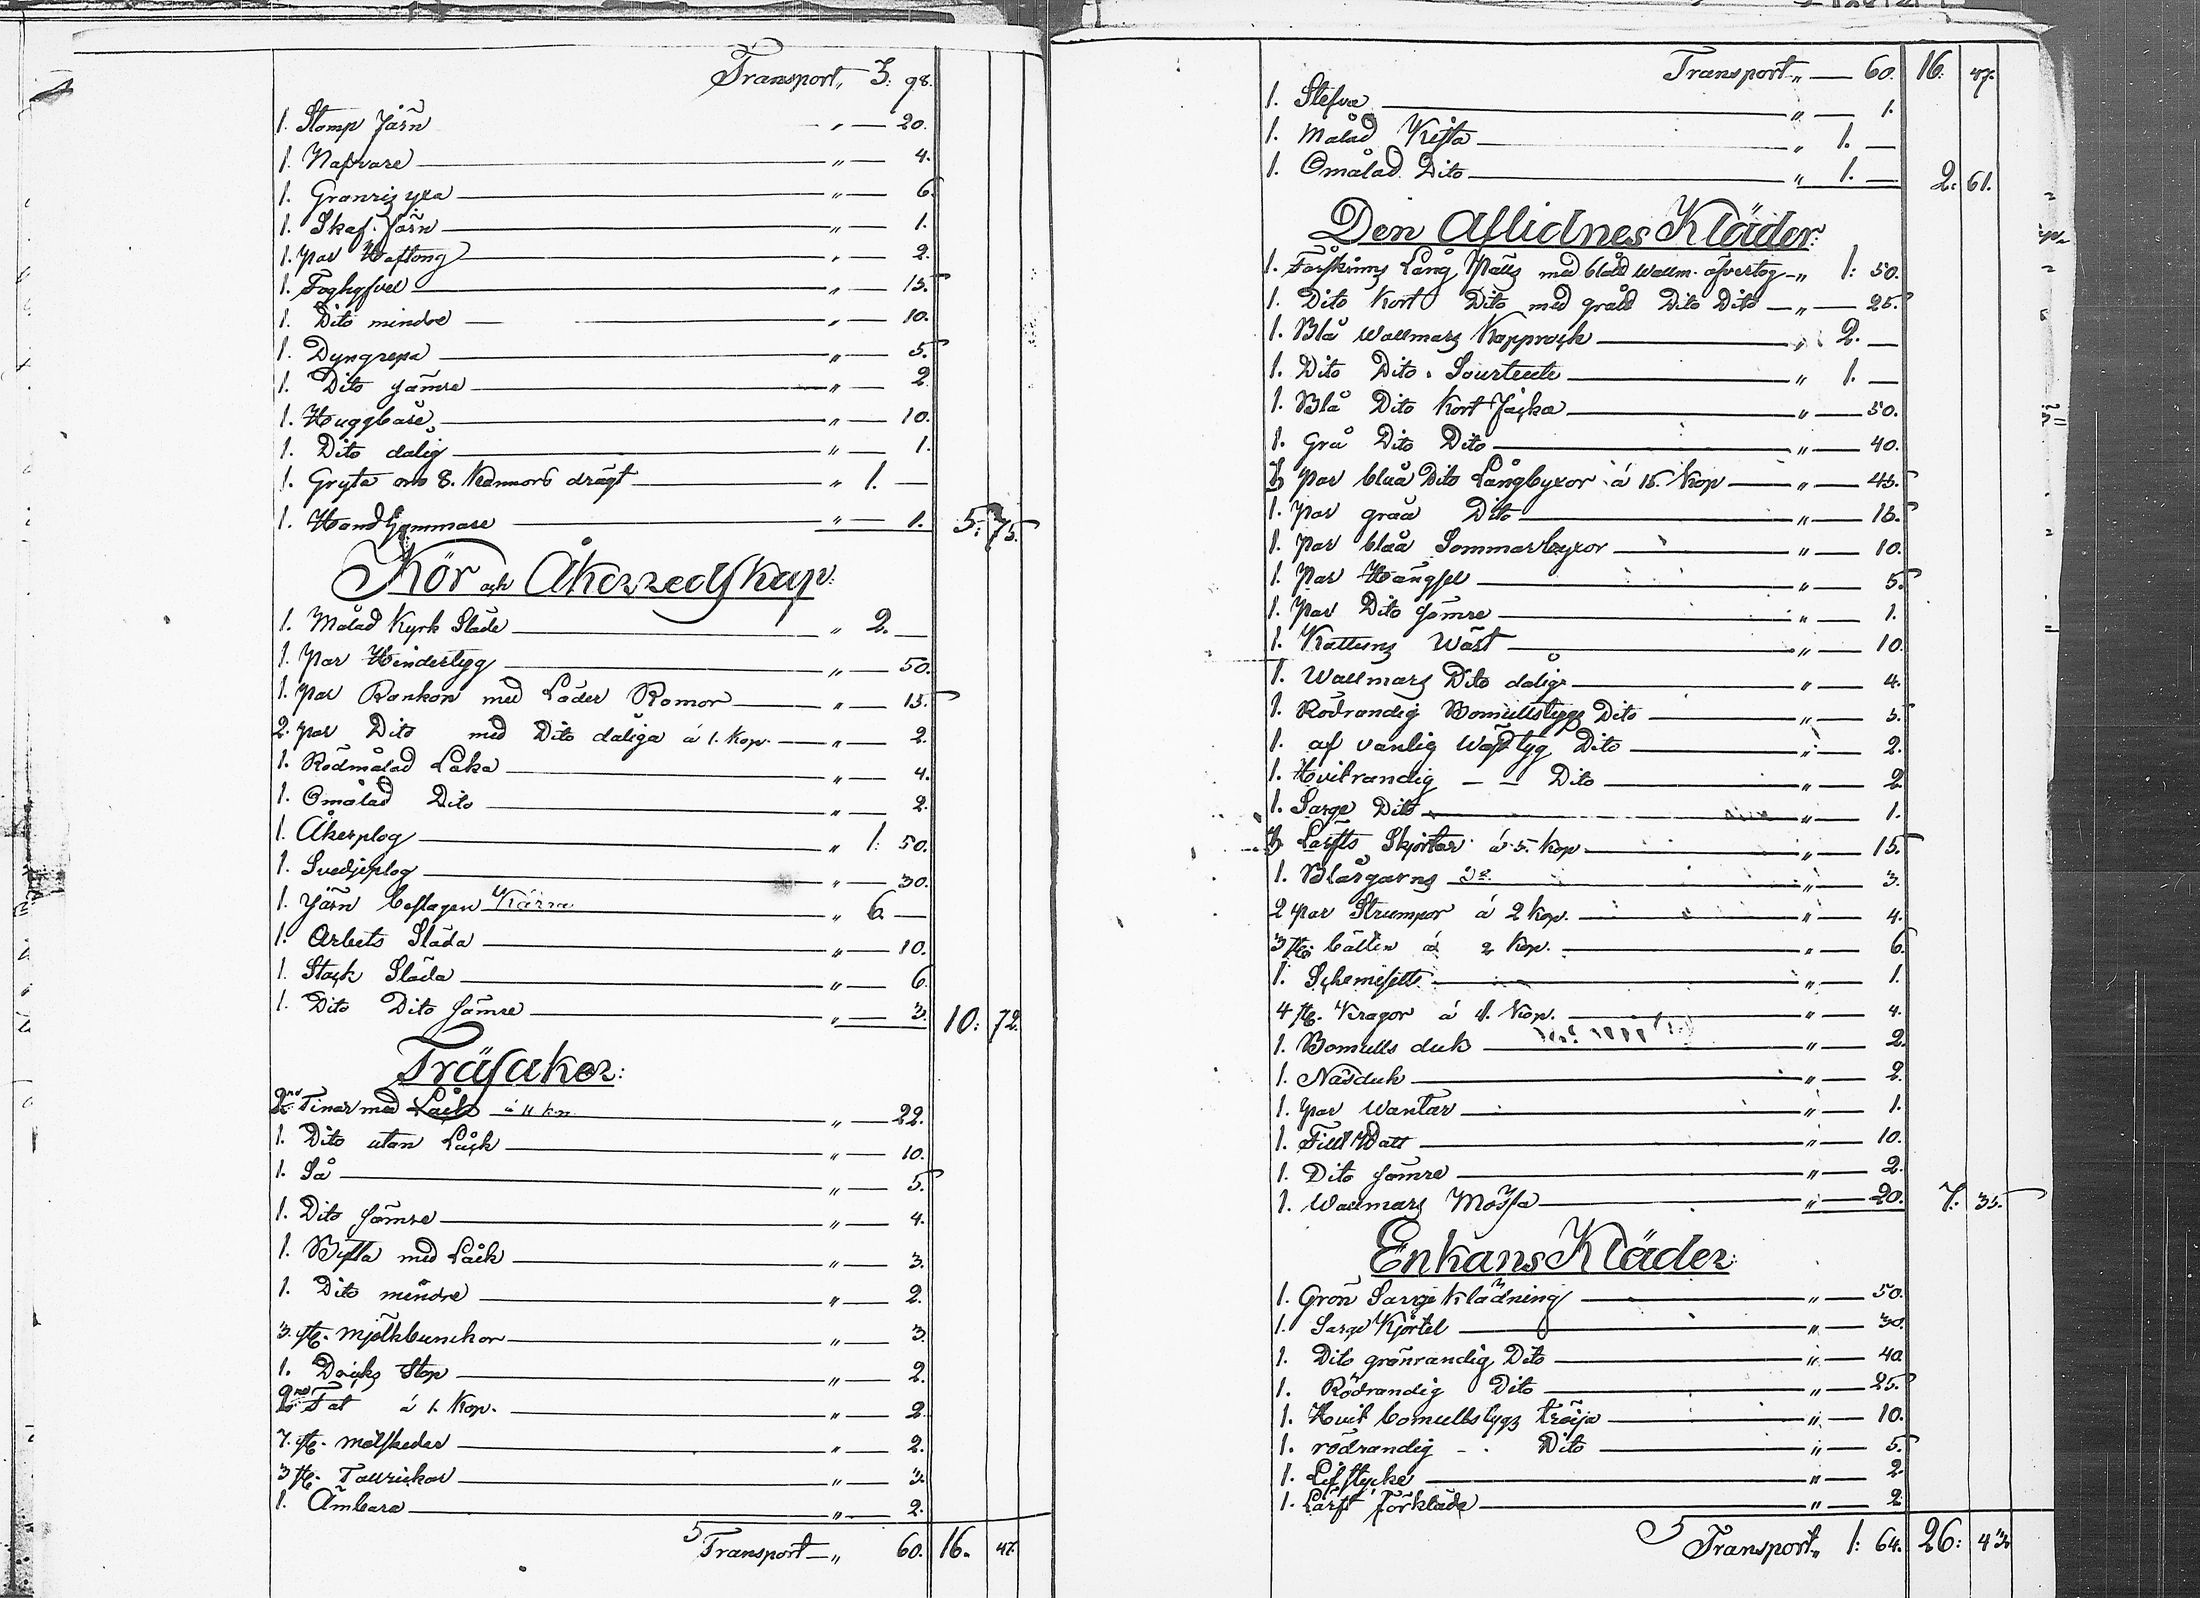 Transport, 3: 98.
1. Stomp Järn " — 20.
1. Nafvare " — 4.
1. Granrisyxa " — 6.
1. Skaf Järn " — 1.
1. par Haftong " — 2.
1. " — 15.
1. Dito mindre " — 10.
1. Dyngrepa " — 5.
1. Dito sämre " — 2
1. Huggbåse " — 10.
1. Dito dålig " — 1.
1. Gryta om 8. Kannors drägt " 1. —
1. Handhammare " — 1. 5: 75.
Kör och Åkerredskap:
1. Målad Kyrk Släde " 2. —
1. Par Hindertyg " — 50.
1. par Rankon med Läder Remor " — 15.
2. par Dito med Dito dåliga á 1. Kop. " — 2.
1. Rödmålad Låka " — 4.
1. Omålad Dito " — 2.
1. Åkerplog " 1: 50.
1. Svedjeplog " — 30.
1. Järn beslagen Kärra " 6. —
1. Arbets Släda " — 10.
1. Stock Släda " — 6.
1. Dito Dito sämre " — 3. 10: 72.
Träsaker:
2ne Tinar med Låck á 11 kp. " — 22.
1. Dito utan Låck " — 10.
1. Så " — 5.
1. Dito sämre " — 4.
1. Bytta med Låck " — 3.
1. Dito mindre " — 2.
3. st. Mjölkbunckor " — 3.
1. Dricks Stop " — 2.
2ne Fat á 1. Kop. " — 2.
7. st. Matskedar " — 2.
3 st. Tallrickar " — 3.
1. Ämbare " — 2.
Transport " 60. 16. 47.
Transport " — 60. 16. 47.
1. Stefva " — 1.
1. Målad Kista " 1. —
1. Omålad Dito " 1. — 2. 61.
Den Aflidnes Kläder:
1. Fårskinns Lång Päls med blått Wallm. öfvertog " 1: 50.
1. Dito Kort Dito med grått Dito Dito " — 25.
1. Blå Wallmars Kapprock " 2. —
1. Dito Dito Sourteute " 1. —
1. Blå Dito Kort Jacka " — 50.
1. Grå Dito Dito " — 40.
3 par blåa Dito Långbyxor á 15. Kop " — 45.
1. par gråa Dito " — 15.
1. par blåa Sommarbyxor " — 10.
1. Par Hängsel " — 5.
1. Par Dito sämre " — 1.
1. Kattuns Wäst " — 10.
1. Wallmars Dito dålig " — 4.
1. Rödrandig Bomullstygs Dito " — 5.
1. af vanlig Wäftyg Dito " — 2.
1. Hvitrandig — — Dito " — 2.
1. Sarge Dito " — 1.
3 Lärfts Skjortar á 5. Kop " — 15.
1. Blårgarns Do " — 3.
2 par Strumpor á 2 Kop. " — 4.
3 st. bälten á 2 Kop. " — 6.
1. Schemisett " — 1.
4 st. Kragor á 1. Kop. " — 4.
1. Bomulls duk " — 2.
1. Näsduk " — 2.
1. par Wantar " — 1.
1. Filt Hatt " — 10.
1. Dito sämre " — 2.
1. Wallmars Mössa " — 20. 7: 35.
Enkans Kläder:
1. Grön Sarge Klädning " — 50.
1. Sarge Kjortel " — 30.
1. Dito grönrandig Dito " — 40
1. Rödrandig Dito " — 25.
1. Hvit bomullstygs tröija " — 10.
1. rödrandig — Dito " — 5.
1. Lifstycke " — 2.
1. Lärft förkläde " — 2
Transport " 1: 64. 26: 43.